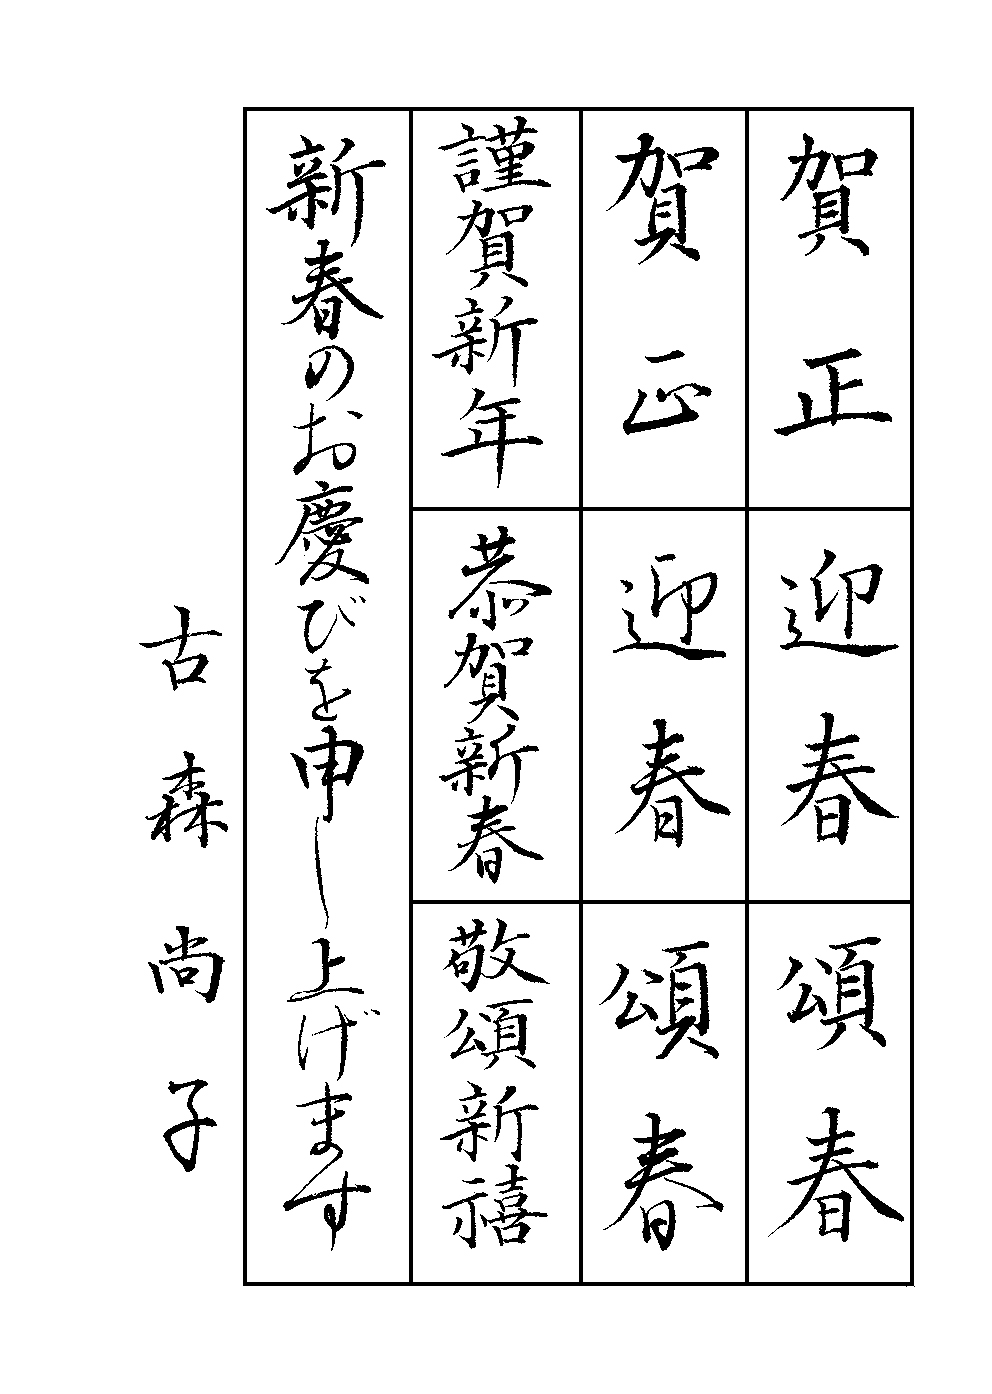 賀正
迎春
頌春
賀正
迎春
頌春
謹賀新年
恭賀新春
敬頌新禧
新春のお慶びを申し上げます
古森尚子